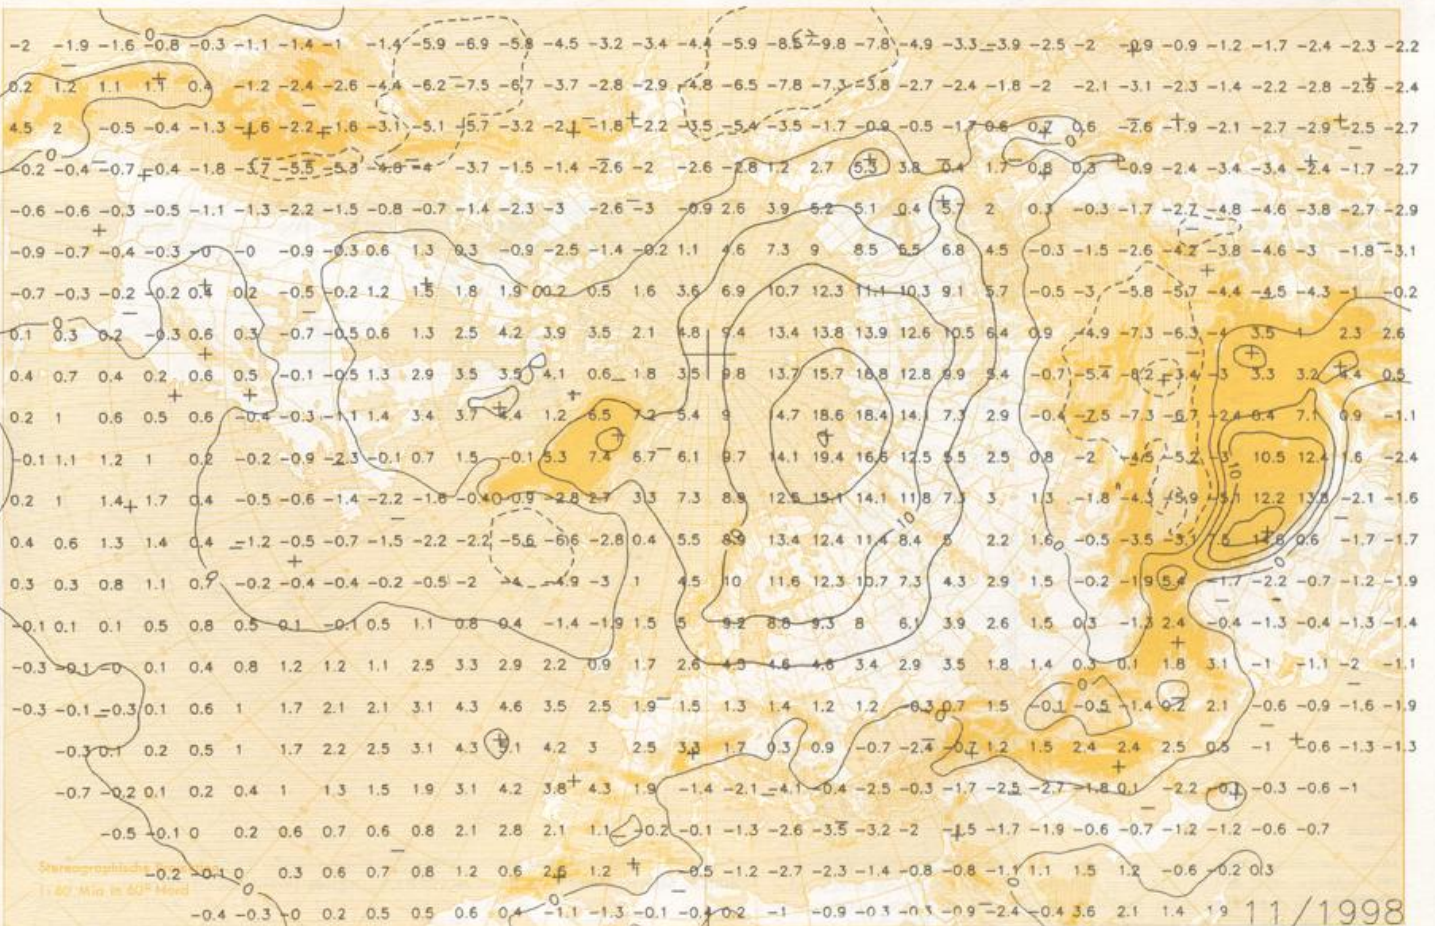 -2 -1.9 -1.6 -0.8 -0.3 -1.1 -1.4 -1 -1.4 -5.9 -6.9 -5.8 -4.5 -3.2 -3.4 -4.4 -5.9 -8.5 -9.8 -7.8 -4.9 -3.3 -3.9 -2.5 -2 -0.9 -0.9 -1.2 -1.7 -2.4 -2.3 -2.2
0.2 1.2 1.1 1.1 0.4 -1.2 -2.4 -2.6 -4.4 -6.2 -7.5 -6.7 -3.7 -2.8 -2.9 -4.8 -6.5 -7.8 -7.3 -3.8 -2.7 -2.4 -1.8 -2 -2.1 -3.1 -2.3 -1.4 -2.2 -2.8 -2.9 -2.4
4.5 2 -0.5 -0.4 -1.3 -1.6 -2.2 -1.6 -3.1 -5.1 -5.7 -3.2 -2.1 -1.8 -2.2 -3.5 -5.4 -3.5 -1.7 -0.9 -0.5 -1.7 0.6 0.7 0.6 -2.6 -1.9 -2.1 -2.7 -2.9 -2.5 -2.7
-0.2 -0.4 -0.7 -0.4 -1.8 -3.7 -5.5 -5.3 -4.8 -4 -3.7 -1.5 -1.4 -2.6 -2 -2.6 -2.8 1.2 2.7 5.3 3.8 0.4 1.7 0.8 0.3 -0.9 -2.4 -3.4 -3.4 -2.4 -1.7 -2.7
-0.6 -0.6 -0.3 -0.5 -1.1 -1.3 -2.2 -1.5 -0.8 -0.7 -1.4 -2.3 -3 -2.6 -3 -0.9 2.6 3.9 5.2 5.1 0.4 5.7 2 0.3 -0.3 -1.7 -2.7 -4.8 -4.6 -3.8 -2.7 -2.9
-0.9 -0.7 -0.4 -0.3 -0 -0 -0.9 -0.3 0.6 1.3 0.3 -0.9 -2.5 -1.4 -0.2 1.1 4.6 7.3 9 8.5 5.5 6.8 4.5 -0.3 -1.5 -2.6 -4.2 -3.8 -4.6 -3 -1.8 -3.1
-0.7 -0.3 -0.2 -0.2 0.4 0.2 -0.5 -0.2 1.2 1.5 1.8 1.9 0.2 0.5 1.6 3.6 6.9 10.7 12.3 11.1 10.3 9.1 5.7 -0.5 -3 -5.8 -5.7 -4.4 -4.5 -4.3 -1 -0.2
0.1 0.3 0.2 -0.3 0.6 0.3 -0.7 -0.5 0.6 1.3 2.5 4.2 3.9 3.5 2.1 4.8 9.4 13.4 13.8 13.9 12.6 10.5 6.4 0.9 -4.9 -7.3 -6.3 -4 3.5 1 2.3 2.6
0.4 0.7 0.4 0.2 0.6 0.5 -0.1 -0.5 1.3 2.9 3.5 3.5 4.1 0.6 1.8 3.5 9.8 13.7 15.7 16.8 12.8 9.9 5.4 -0.7 -5.4 -8.2 -3.4 -3 3.3 3.2 4.4 0.5
0.2 1 0.6 0.5 0.6 -0.4 -0.3 -1.1 1.4 3.4 3.7 4.4 1.2 6.5 7.2 5.4 9 14.7 18.6 18.4 14.1 7.3 2.9 -0.4 -7.5 -7.3 -6.7 -2.4 0.4 7.1 0.9 -1.1
-0.1 1.1 1.2 1 0.2 -0.2 -0.9 -2.3 -0.1 0.7 1.5 -0.1 5.3 7.4 6.7 6.1 9.7 14.1 19.4 16.6 12.5 5.5 2.5 0.8 -2 -4.5 -5.2 -3 10.5 12.4 1.6 -2.4
0.2 1 1.4 1.7 0.4 -0.5 -0.6 -1.4 -2.2 -1.6 -0.4 0 -0.9 -2.8 2.7 3.3 7.3 8.9 12.5 15.1 14.1 11.8 7.3 3 1.3 -1.8 -4.3 -5.9 -5.1 12.2 13.8 -2.1 -1.6
0.4 0.6 1.3 1.4 0.4 -1.2 -0.5 -0.7 -1.5 -2.2 -2.2 -5.6 -6.6 -2.8 0.4 5.5 8.9 13.4 12.4 11.4 8.4 10 2.2 1.6 0 -0.5 -3.5 -3.1 0.6 -1.7 -1.7
0.3 0.3 0.8 1.1 0.7 -0.2 -0.4 -0.4 -0.2 -0.5 -2 -4 -4.9 -3 1 4.5 10 11.6 12.3 10.7 7.3 4.3 2.9 1.5 -0.2 -1.9 5.4 -1.7 -2.2 -0.7 -1.2 -1.9
-0.1 0.1 0.1 0.5 0.8 0.5 0.1 -0.1 0.5 1.1 0.8 0.4 -1.4 -1.9 1.5 5 9.2 8.8 9.3 8 6.1 3.9 2.6 1.5 0.3 -1.3 2.4 -0.4 -1.3 -0.4 -1.3 -1.4
-0.3 -0.1 -0 0.1 0.4 0.8 1.2 1.2 1.1 2.5 3.3 2.9 2.2 0.9 1.7 2.6 4.3 4.6 4.6 3.4 2.9 3.5 1.8 1.4 0.3 0.1 1.8 3.1 -1 -1.1 -2 -1.1
-0.3 -0.1 -0.3 0.1 0.6 1 1.7 2.1 2.1 3.1 4.3 4.6 3.5 2.5 1.9 1.5 1.3 1.4 1.2 1.2 -0.3 0.7 1.5 -0.1 -0.5 -1.4 0.2 2.1 -0.6 -0.9 -1.6 -1.9
-0.3 0.1 0.2 0.5 1 1.7 2.2 2.5 3.1 4.3 5.1 4.2 3 2.5 3.3 1.7 0.3 0.9 -0.7 -2.4 -0.7 1.2 1.5 2.4 2.4 2.5 0.5 -1 -0.6 -1.3 -1.3
-0.7 -0.2 0.1 0.2 0.4 1 1.3 1.5 1.9 3.1 4.2 3.8 4.3 1.9 -1.4 -2.1 -4.1 -0.4 -2.5 -0.3 -1.7 -2.5 -2.7 -1.8 0.1 -2.2 -0.3 -0.6 -1
-0.5 -0.1 0 0.2 0.6 0.7 0.6 0.8 2.1 2.8 2.1 1.1 -0.2 -0.1 -1.3 -2.6 -3.5 -3.2 -2 -1.5 -1.7 -1.9 -0.6 -0.7 -1.2 -1.2 -0.6 -0.7
Stereographische
-0.2 -0.1 0 0.3 0.6 0.7 0.8 1.2 0.6 2.5 1.2 1 -0.5 -1.2 -2.7 -2.3 -1.4 -0.8 -0.8 -1.1 1.1 1.5 1.2 -0.6 -0.2 0.3
1:60 Mio in 60° Nord
-0.4 -0.3 -0 0.2 0.5 0.5 0.6 0.4 -1.1 -1.3 -0.1 -0.4 0.2 -1 -0.9 -0.3 -0.3 -0.9 -2.4 -0.4 3.6 2.1 1.4 1.9 11/1998